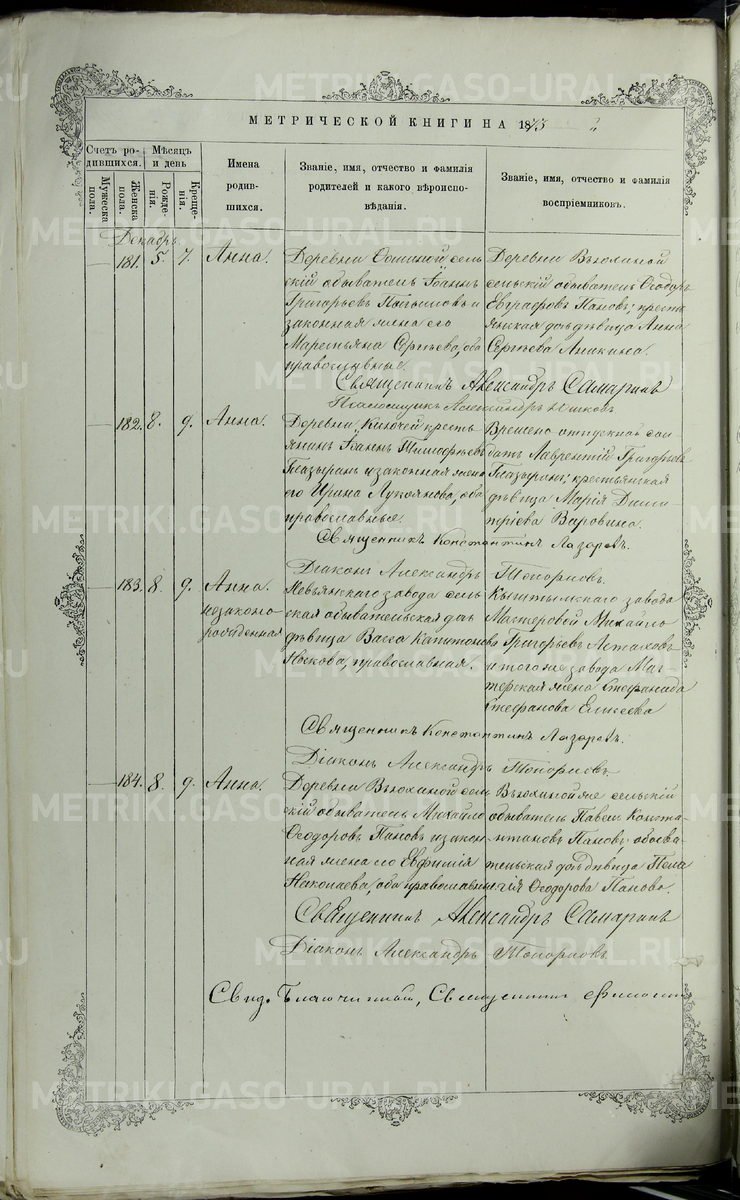 МЕТРИЧЕСКОЙ КНИГИ НА 18
Счетъ ро-
дившихся.
Мѣсяцъ
и день
Мужеска
пола.
Женска
пола.
Рожде-
нія.
Креще-
нія.
Имена
родив-
шихся.
Званіе, имя, отчество и фамилія
родителей и какого вѣроиспо-
вѣданія.
Званіе, имя, отчество и фамилія
воспріемниковъ.
Декабрь
181. 5. 7. Анна.
Деревни сель-
скій обыватель Іоаннъ
Григорьевъ и
законная жена его
Сергѣева, оба
православные.
Деревни
сельскій обыватель Ѳеодоръ
Евграфовъ Пановъ; кресть
янская дочь дѣвица Анна
Сергѣева Аникина.
Священникъ Александръ Самаринъ
Псаломщикъ Александръ
182. 8. 9. Анна.
Деревни Ключей кресть
янинъ Іоаннъ Тимофѣевъ
и законная жена
его Ирина Лукоянова, оба
православные.
Временно отпускной сол-
датъ Лаврентій Григорьевъ
крестьянская
дѣвица Марія Дими
тріева
Священникъ Константинъ Лазаревъ.
Діаконъ Александръ Топорковъ.
183. 8. 9. Анна.
незаконо-
рожденная
Невьянскаго завода сель-
ская обывательская дочь
дѣвица Васса Капитонова
православная.
Кыштымскаго завода
Мастеровой Михайло
Григорьевъ Астаховъ
и того же завода Мас-
терская жена Стефанида
Стефанова Елисеева
Священникъ Константинъ Лазаревъ.
Діаконъ Александръ Топорковъ.
184. 8. 9. Анна.
Деревни сель
скій обыватель Михайло
Ѳеодоровъ Пановъ и закон-
ная жена его Евфимія
Николаева, оба православные
же сельскій
обыватель Павелъ Конста-
нтиновъ Пановъ; обыва-
тельская дочь дѣвица Пела
гія Ѳеодорова Панова.
Священникъ Александръ Самаринъ
Діаконъ Александръ Топорковъ
Свид. Благочинный, Священникъ
METRIKI.GASO-URAL.RU